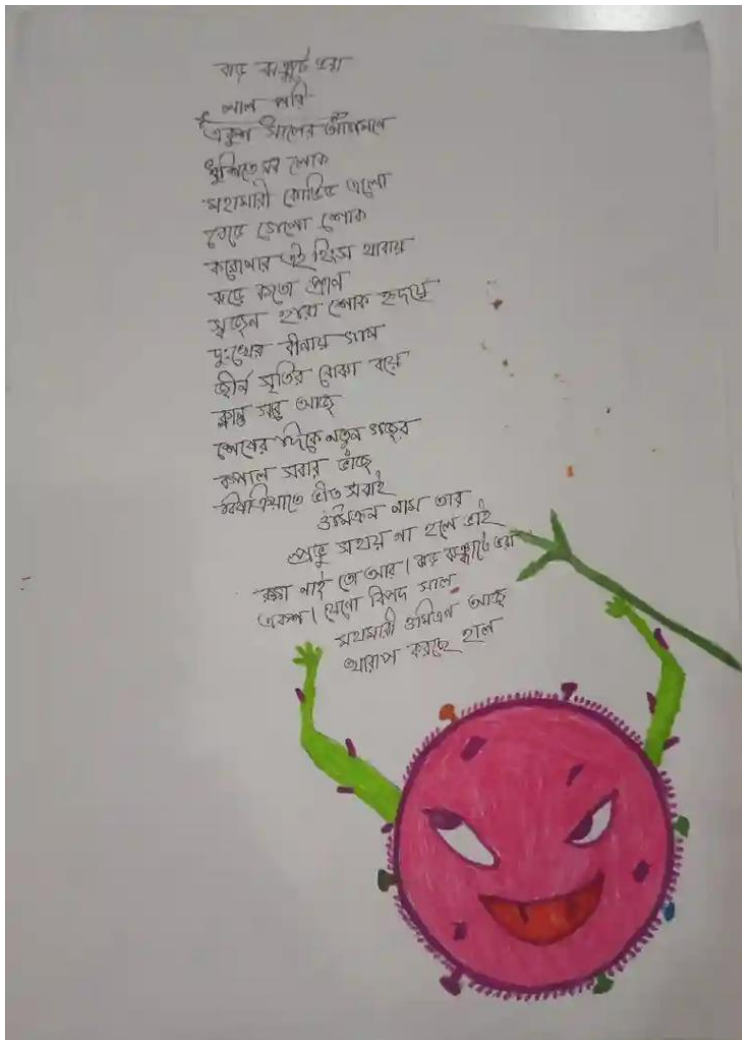 ঝড় ঝঞ্ঝাটে ভরা
লাল পরি
একুশ সালের আগমনে
খুশিতে সব লোক
মহামারী কোভিড এলো
বেড়ে গেলো শোক
করোনার এই হিংস্র থাবায়
ঝড়ে কতো প্রাণ
স্বজন হারা শোক হৃদয়ে
দুঃখের বীনায় গান
জীর্ন স্মৃতির বোঝা বয়ে
ক্লান্ত সবু আছে
শেষের দিকে নতুন
কপাল সবার ভাঁজে
ভীত সবাই
ওমিক্রন নাম তার
প্রভু সহায় না হলে ভাই
রক্ষা নাই তো আর। ঝড় ঝঞ্ঝাটে ভরা
একুশ। যেনো বিপদ সাল
মহামারী ওমিক্রন আছে
খারাপ করছে হাল